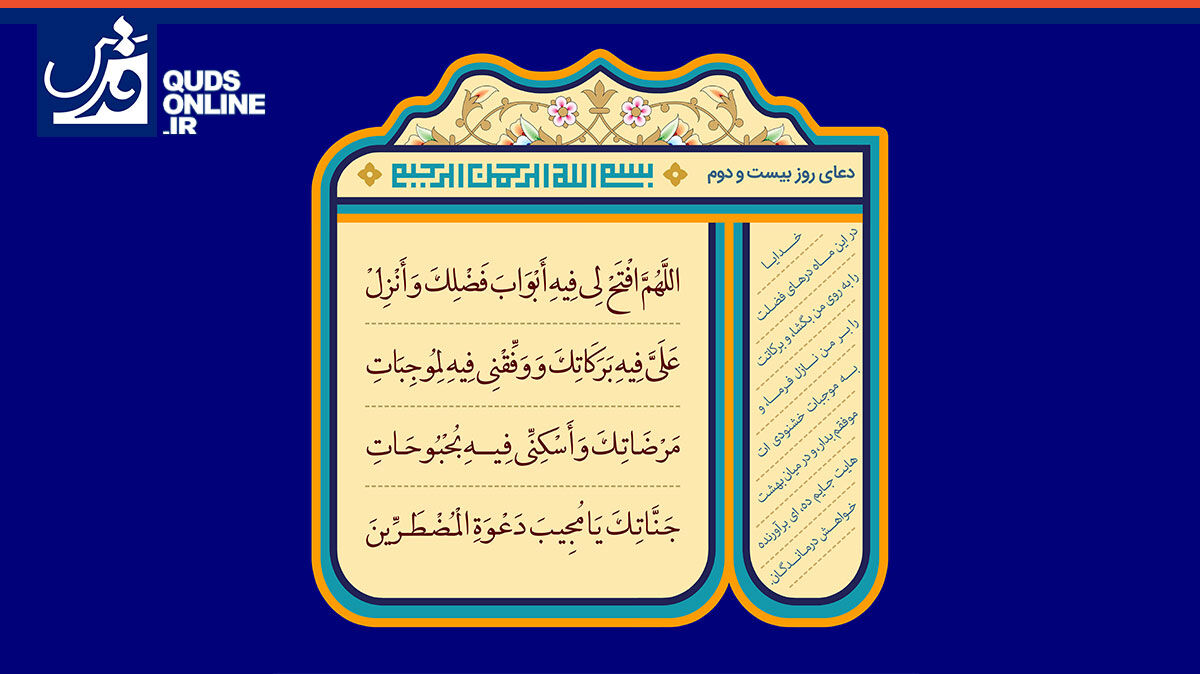 قدس
QUDS
ONLINE
.IR
دعای روز بیست و دوم
بسم الله الرحمن الرحیم
اللَّهُمَّ افْتَحْ لِی فِیهِ أَبْوَابَ فَضْلِكَ وَ أَنْزِلْ
عَلَیَّ فِیهِ بَرَكَاتِكَ وَ وَفِّقْنِی فِیهِ لِمُوجِبَاتِ
مَرْضَاتِكَ وَ أَسْكِنِّی فِیهِ بُحْبُوحَاتِ
جَنَّاتِكَ یَا مُجِیبَ دَعْوَةِ الْمُضْطَرِّینَ
خدایا
در این ماه درهای فضلت
را به روی من بگشا، و برکاتت
را بر من نازل فرما، و
به موجبات خشنودی ات
موفقم بدار، و در میان بهشت
هایت جایم ده، ای برآورنده
خواهش درماندگان.